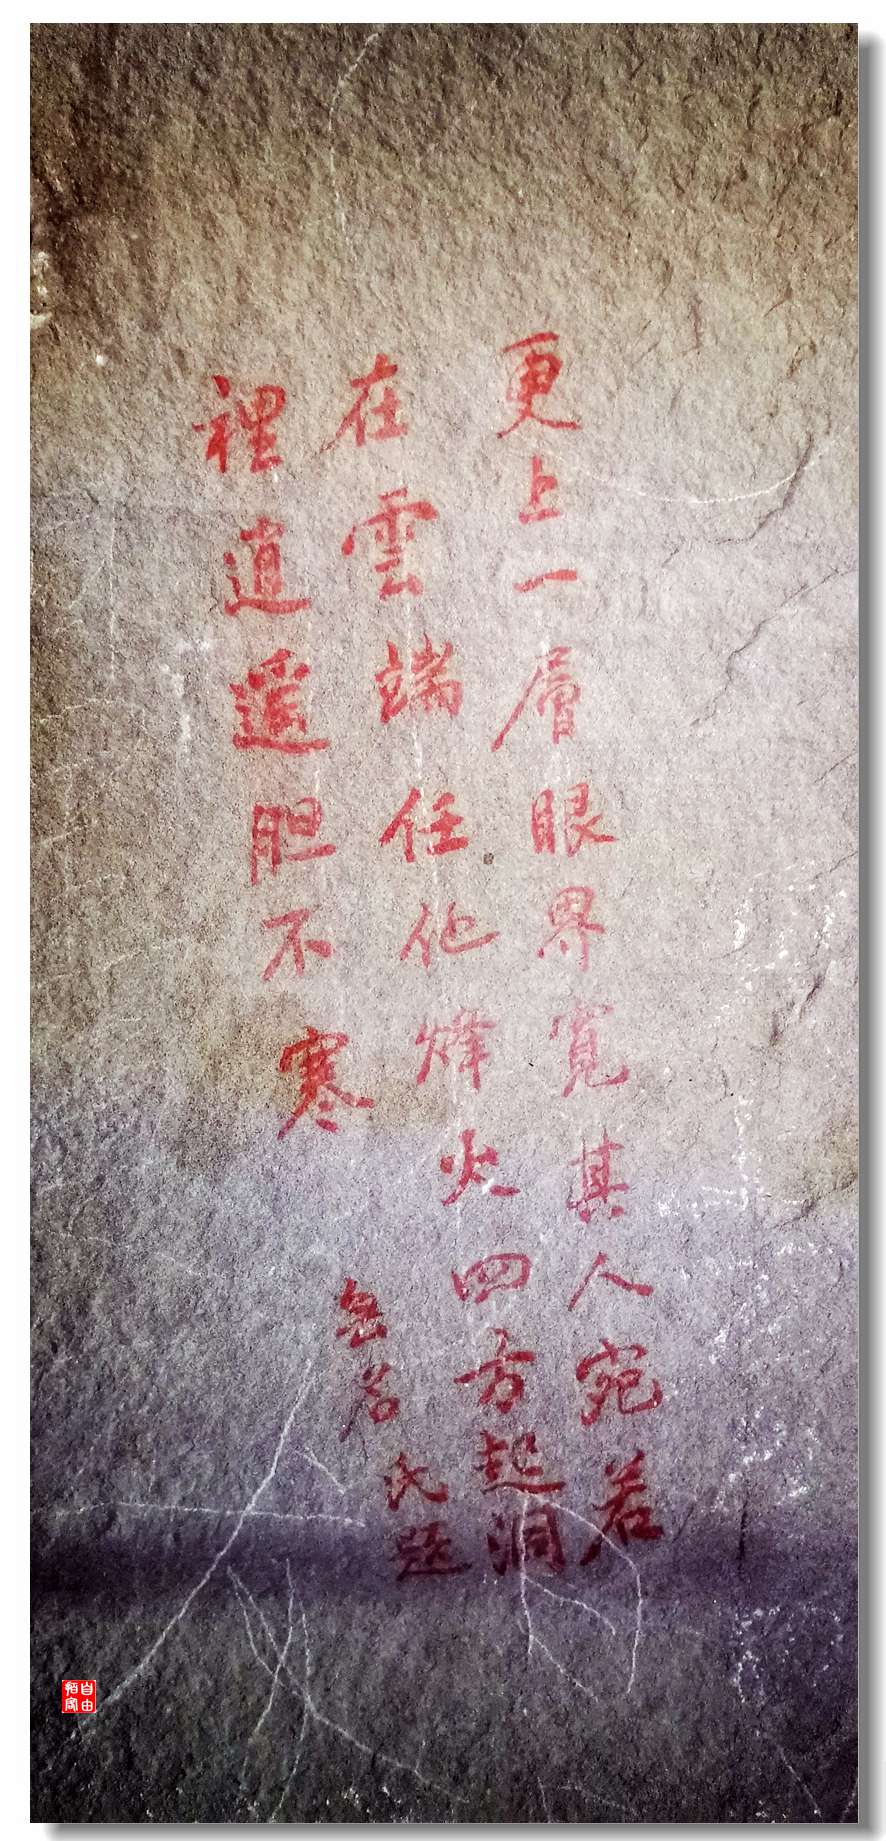 更上一層眼界寬其人宛若
在雲端任他烽火四方起洞
裡逍遥胆不寒
無名氏題
自由